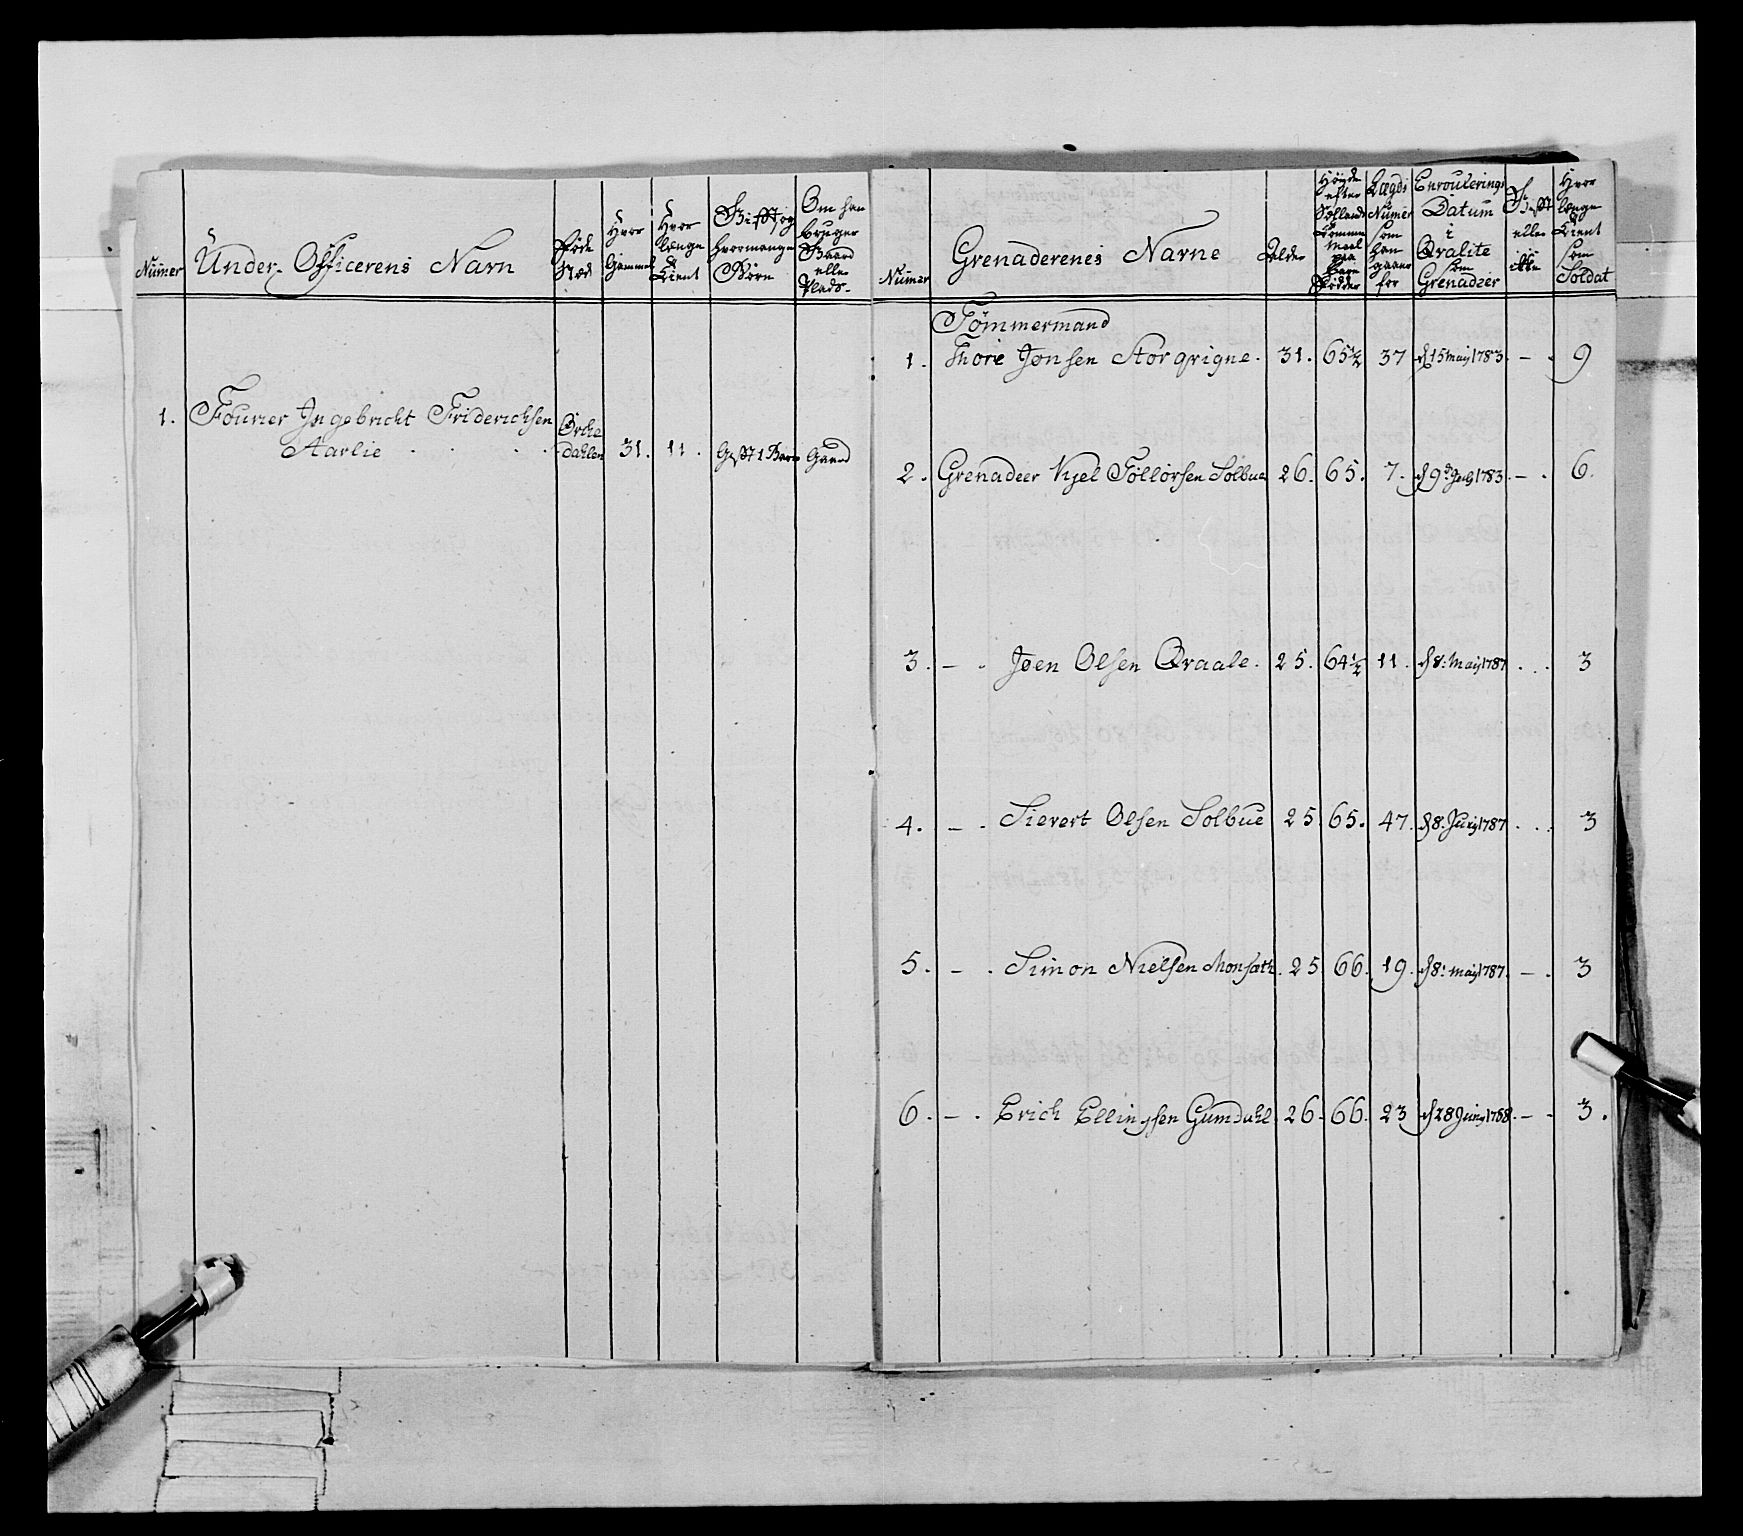 Numer
Under-Officerens Navn
Føde Stæd
Hvor Gammel
Hvor længe Tient
Gifft og hvormange Børn
Om han bruger Gaard eller Plads.
1. Fourier Ingebricht Friderichsen
Aarlie . . . . Orche dahlen 31. 11. Gifft 1 Barn Gaard
Numer
Grenaderenes Navne
Alder
Høyde efter Siællands Tomme Maal paa bare Fødder
Lægds Numer som han gaaer for
Enroulerings Datum i Qvalite som Grenadeer
Gifft eller ikke
Hvor længe Tient som Soldat
Tømmermand
1. Thore Jonsen Storqvigne. 31. 65½ 37 d 15 maij 1783. - . 9
2. Grenadeer Kjel Tollorsen Solbue 26. 65. 7. 1783. - . 6.
3. - . Joen Olsen Qvaale. 25. 64½ 11. d 8. Maij 1787 . . . 3
4. - . Sievert Olsen Solbue 25. 65. 47. d 8. 1787 . . . 3
5. - . Simon Nielsen Monsæth. 25 66. 19. d 8. maij 1787. - . 3
6. - . Erich Ellingsen Gumdahl 26. 66. 23 d 28 Junij 1788. - . 3.